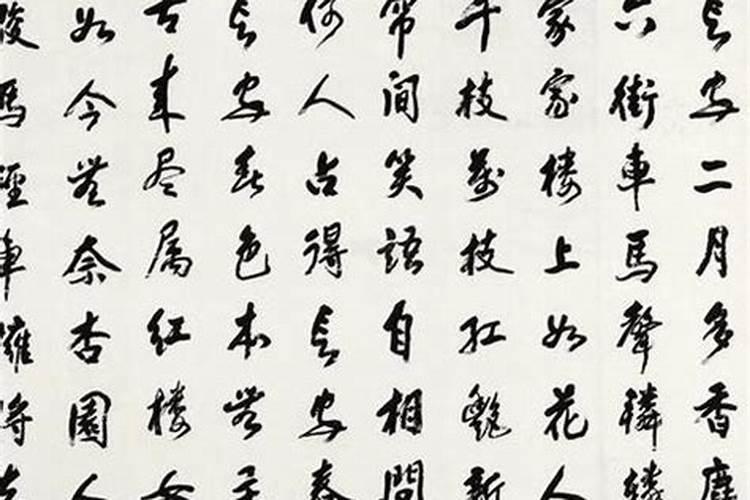 长安二月多香塵
六街車馬聲轔轔
家家楼上如花人
千枝萬枝紅艷新
帘间笑語自相問
何人占得长安春
长安春色本無主
古来尽属紅楼女
如今無奈杏園人
駿馬輕車擁将去